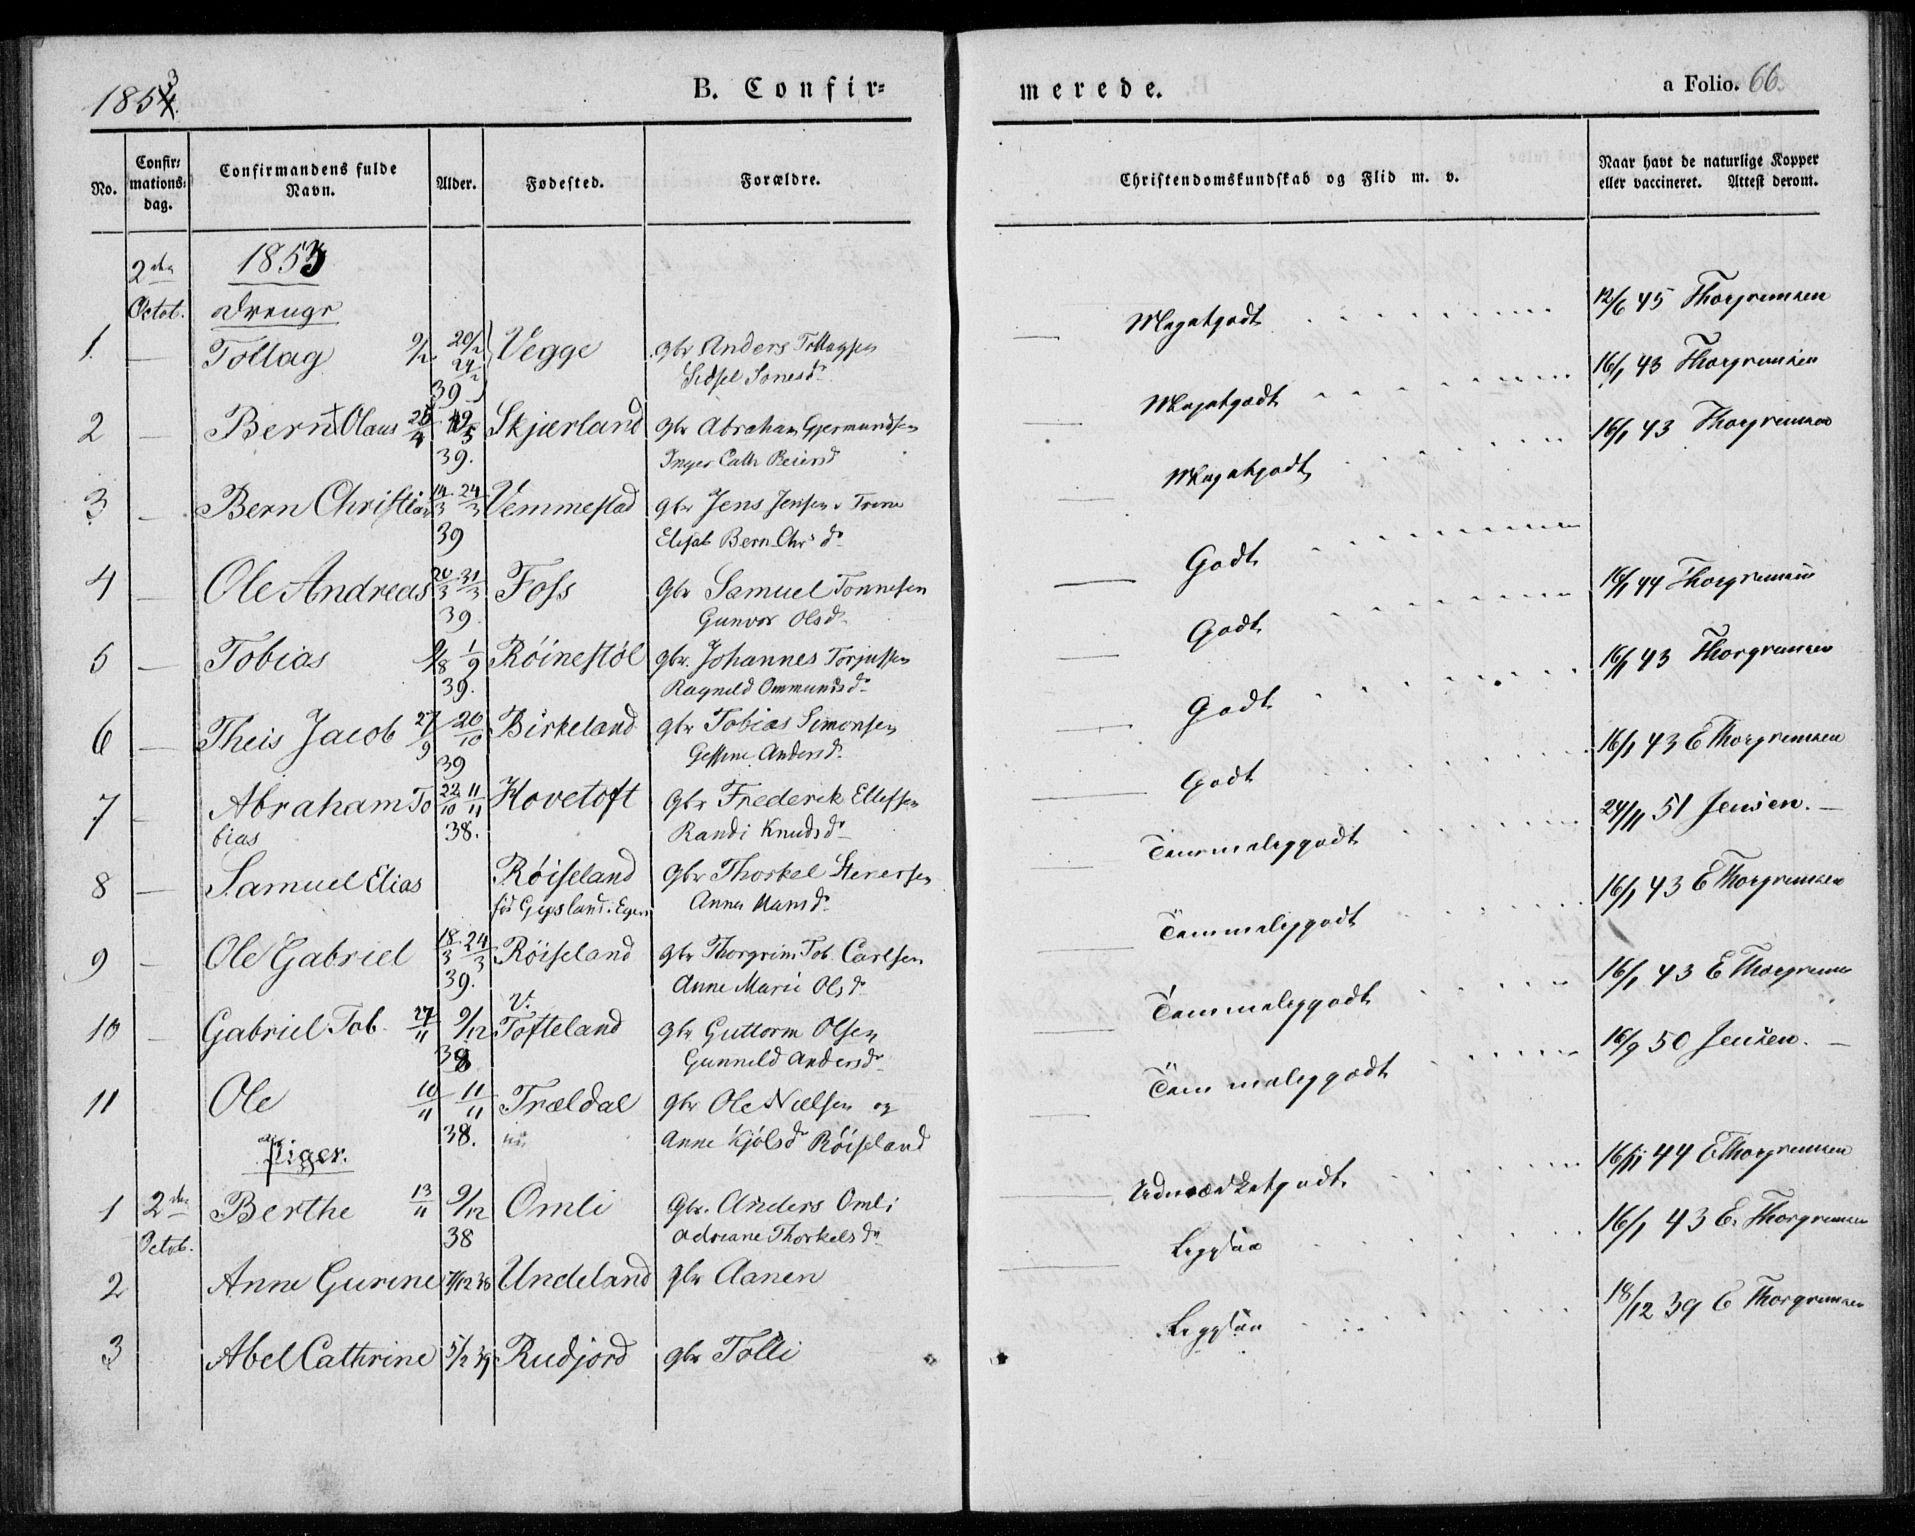 1853
B. Confir-
merede.
a Folio. 66.
No.
Confir-
mations-
dag.
Confirmandens fulde
Navn.
Alder.
Fødested.
Forældre.
Christendomskundskab og Flid m. v.
Naar havt de naturlige Kopper
eller vaccineret. Attest derom.
2den
Octob.
1853
Drenge
1 Tollag 20/2 Vegge gbr Anders Tollagsen
39 Sidsel Tonesdr
Megetgodt 12/6 45 Thorgrimsen
2 Bernt Olaus 19/5 Skjærland gbr Abraham Gjermundsen
39. Inger Cath Beiersd
Megetgodt 16/1 43 Thorgrimsen
3 Bern Christian 14/3 24/3 Vemmestad gbr Jens Jensen Trine
39 Elisab Bern Chr dr
Megetgodt 16/1 43 Thorgrimsen
4 Ole Andreas 20/3 31/3 Foss gbr Samuel Tonnesen
39. Gunvor Olsdr
Godt
5 Tobias 9/8 1/9 Røinestøl gbr. Johannes Torjussen
39. Ragnild Ommundsdr
Godt 16/1 44 Thorgrimsen
6 Theis Jacob 27/9 20/10 Birkeland gbr Tobias Simonsen
39 Gesine Andersdr
Godt 16/1 43 Thorgrimsen
7 Abraham To 22/10 11/11 Hovetoft Gbr Frederek Ellefsen
bias 38. Randi Knudsdr
Godt 16/1 43 E Thorgrimsen
8 Samuel Elias Røiseland gbr Thorkel Sterersen
Anna Hansdr
Temmeliggodt 24/11 51 Jensen.
9 Ole Gabriel 18/3 24/3 Røiseland gbr Thorgrim Tob. Carlsen
39. Anne Marie Olsdr
Temmeliggodt 16/1 43 E Thorgrimsen
10 Gabriel Tob. 27/11 9/12 V. Tofteland gbr Guttorm Olsen
38 Gunnild Andersdr
Temmeliggodt 16/1 43 E Thorgrimsen
11 Ole 10/11 11/11 Trældal gbr Ole Nielsen og
38. Anne Kjølsdr Røiseland
Temmeliggodt 16/9 50 Jensen.
Piger.
1 2den Octob. Berthe 13/11 9/12 Omli Gbr. Anders Omli
38 Adriane Thorkelsdr
Udmærketgodt 16/11 44 E Thorgrimsen
2 Anne Gurine 7/12 38 Undeland gbr Aanen
16/1 43 E. Thorgrimsen
3 Abel Cathrine 5/12 39 Rudjord gbr Tolli
18/12 39 E Thorgrimsen